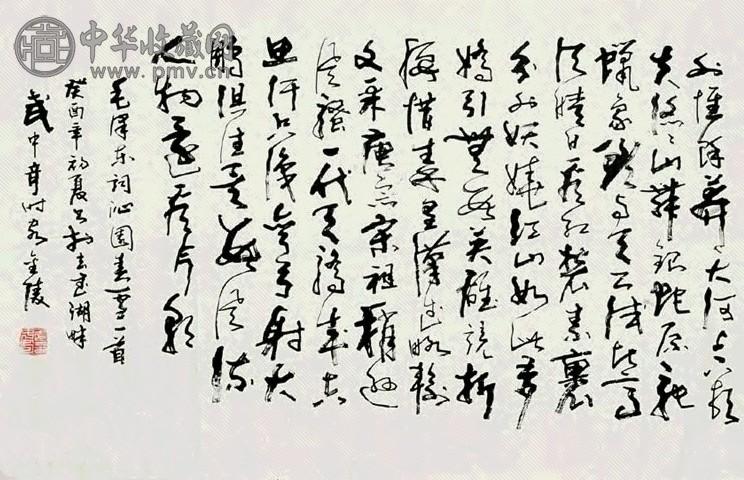 中华收藏网
www.pmv.cn
外惟馀莽莽大河上下顿
失滔滔山舞银蛇原驰
蜡象欲与天公试比高
须晴日看红装素裹
分外妖娆江山如此多
娇引无数英雄竞折
腰惜秦皇汉武略输
文采唐宗宋祖稍逊
风骚一代天骄成吉
思汗只识弯弓射大
雕俱往矣数风流
人物还看今朝
毛泽东词沁园春雪一首
癸酉年初夏书于玄武湖畔
武中奇时客金陵